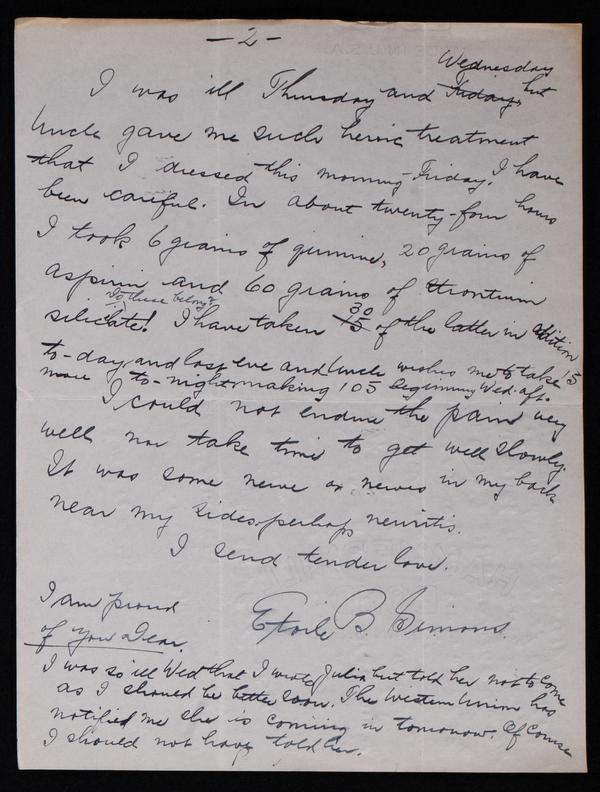 - 2 -
Wednesday
I was ill Thursday and Friday, but
Uncle gave me such heroic treatment
that I dressed this morning - Friday. I have
been careful. In about twenty-four hours
I took 6 grains of quinine, 20 grains of
aspirin and 60 grains of strontium
silicate! I have taken 15 30 of the latter in addition
to-day, and last eve and Uncle wishes me to take 15
more to-night making 105 beginning Wed. aft.
I could not endure the pain very
well nor take time to get well slowly.
It was some nerve or nerves in my back
near my sides, perhaps neuritis.
I send tender love.
Etoile B. Simons.
I am proud
of you Dear.
I was so ill Wed that I wrote Julia but told her not to come
as I should be better soon. The Western Union has
notified me she is coming in tomorrow. Of course
I should not have told her.